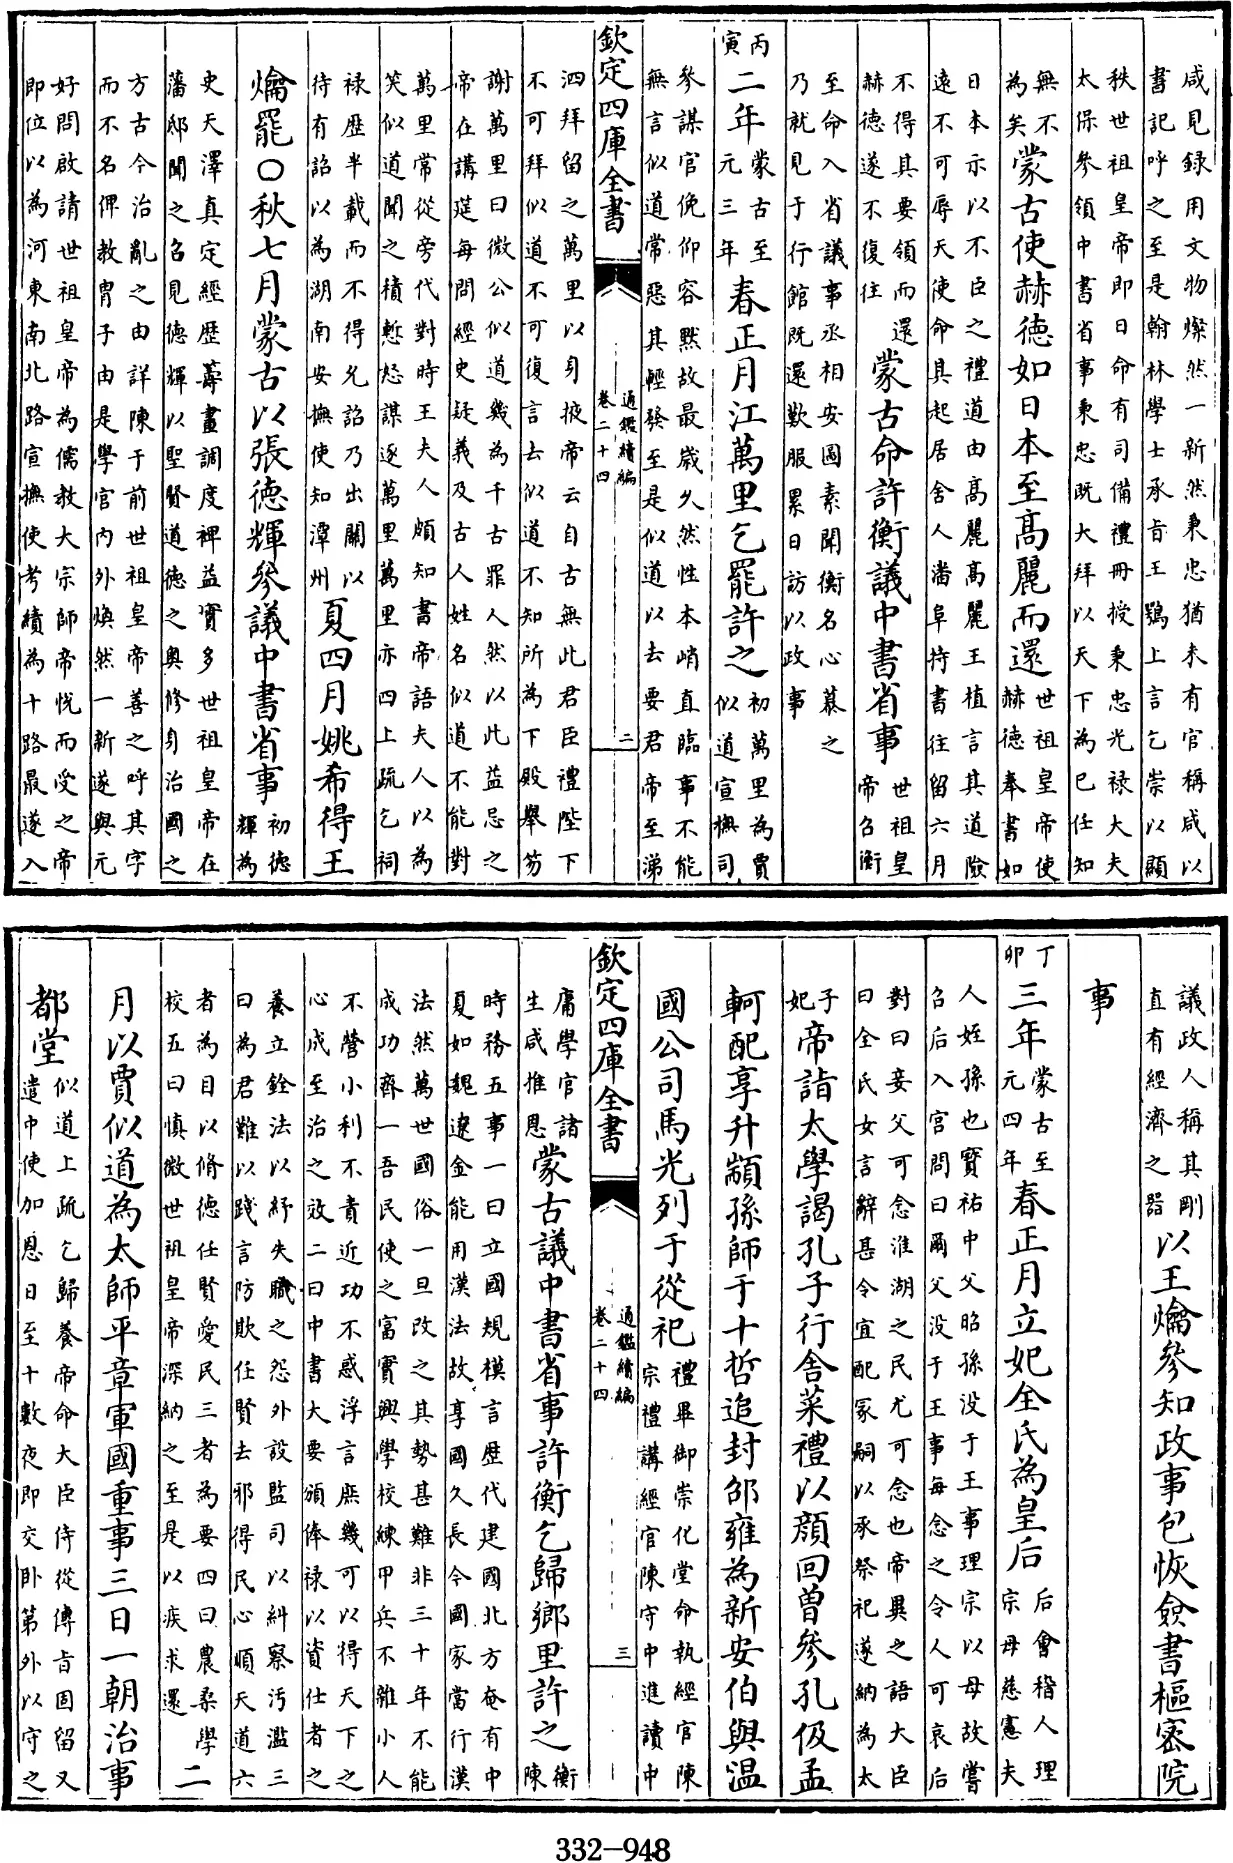 咸見録用文物燦然一新然秉忠猶未有官稱咸以
書記呼之至是翰林學士承旨王鶚上言乞崇以顯
秩世祖皇帝即日命有司備禮冊授秉忠光禄大夫
太保參領中書省事秉忠既大拜以天下為已任知
無不為矣蒙古使赫德如日本至髙麗而還世祖皇帝使赫德奉書如
日本示以不臣之禮道由髙麗髙麗王植言其道險
逺不可辱天使命其起居舍人潘阜持書往留六月
不得其要領而還赫德遂不復往蒙古命許衡議中書省事世祖皇帝召衡
至命入省議事丞相安圖素聞衡名心慕之
乃就見于行館既還歎服累日訪以政事
丙寅二年蒙古至元三年春正月江萬里乞罷許之初萬里為賈似道宣撫司
參謀官俛仰容黙故最歲久然性本峭直臨事不能
無言似道常惡其輕發至是似道以去要君帝至涕
欽定四庫全書
通鑑續編
卷二十四
二
泗拜留之萬里以身掖帝云自古無此君臣禮陛下
不可拜似道不可復言去似道不知所為下殿舉笏
謝萬里曰微公似道幾為千古罪人然以此益忌之
帝在講筵每問經史疑義及古人姓名似道不能對
萬里常從旁代對時王夫人頗知書帝語夫人以為
笑似道聞之積慙怒謀逐萬里萬里亦四上疏乞祠
禄歴半載而不得允詔乃出關以待有詔以為湖南安撫使知潭州夏四月姚希得王
爚罷〇秋七月蒙古以張徳輝參議中書省事初徳輝為
史天澤真定經歴籌畫調度裨益實多世祖皇帝在
藩邸聞之召見徳輝以聖賢道徳之奥修身治國之
方古今治亂之由詳陳于前世祖皇帝善之呼其字
而不名俾教胄子由是學官内外煥然一新遂與元
好問啟請世祖皇帝為儒教大宗師帝悅而受之帝
即位以為河東南北路宣撫使考績為十路最遂入
議政人稱其剛直有經濟之器以王爚參知政事包恢僉書樞密院
事
丁卯三年蒙古至元四年春正月立妃全氏為皇后后會稽人理宗母慈憲夫
人姪孫也寳祐中父昭孫没于王事理宗以母故嘗
召后入宫問曰爾父没于王事每念之令人可哀后
對曰妾父可念淮湖之民尤可念也帝異之語大臣
曰全氏女言辭甚令宜配冢嗣以承祭祀遂納為太
子妃帝詣太學謁孔子行舍菜禮以顔回曽參孔伋孟
軻配享升顓孫師于十哲追封邵雍為新安伯與温
國公司馬光列于從祀禮畢御崇化堂命執經官陳宗禮講經官陳守中進讀中
欽定四庫全書
通鑑續編
卷二十四
三
庸學官諸生咸推恩蒙古議中書省事許衡乞歸鄉里許之衡陳
時務五事一曰立國規模言歴代建國北方奄有中
夏如魏遼金能用漢法故享國久長今國家當行漢
法然萬世國俗一旦改之其勢甚難非三十年不能
成功齊一吾民使之富實興學校練甲兵不雜小人
不營小利不責近功不惑浮言庶幾可以得天下之
心成至治之效二曰中書大要頒俸禄以資仕者之
養立銓法以紓失職之怨外設監司以糾察汚濫三
曰為君難以踐言防欺任賢去邪得民心順天道六
者為目以脩德任賢愛民三者為要四曰農桑學
校五曰慎微世祖皇帝深納之至是以疾求還二
月以賈似道為太師平章軍國重事三日一朝治事
都堂似道上疏乞歸養帝命大臣侍從傳旨固留又
遣中使加恩日至十數夜即交卧第外以守之
332-948